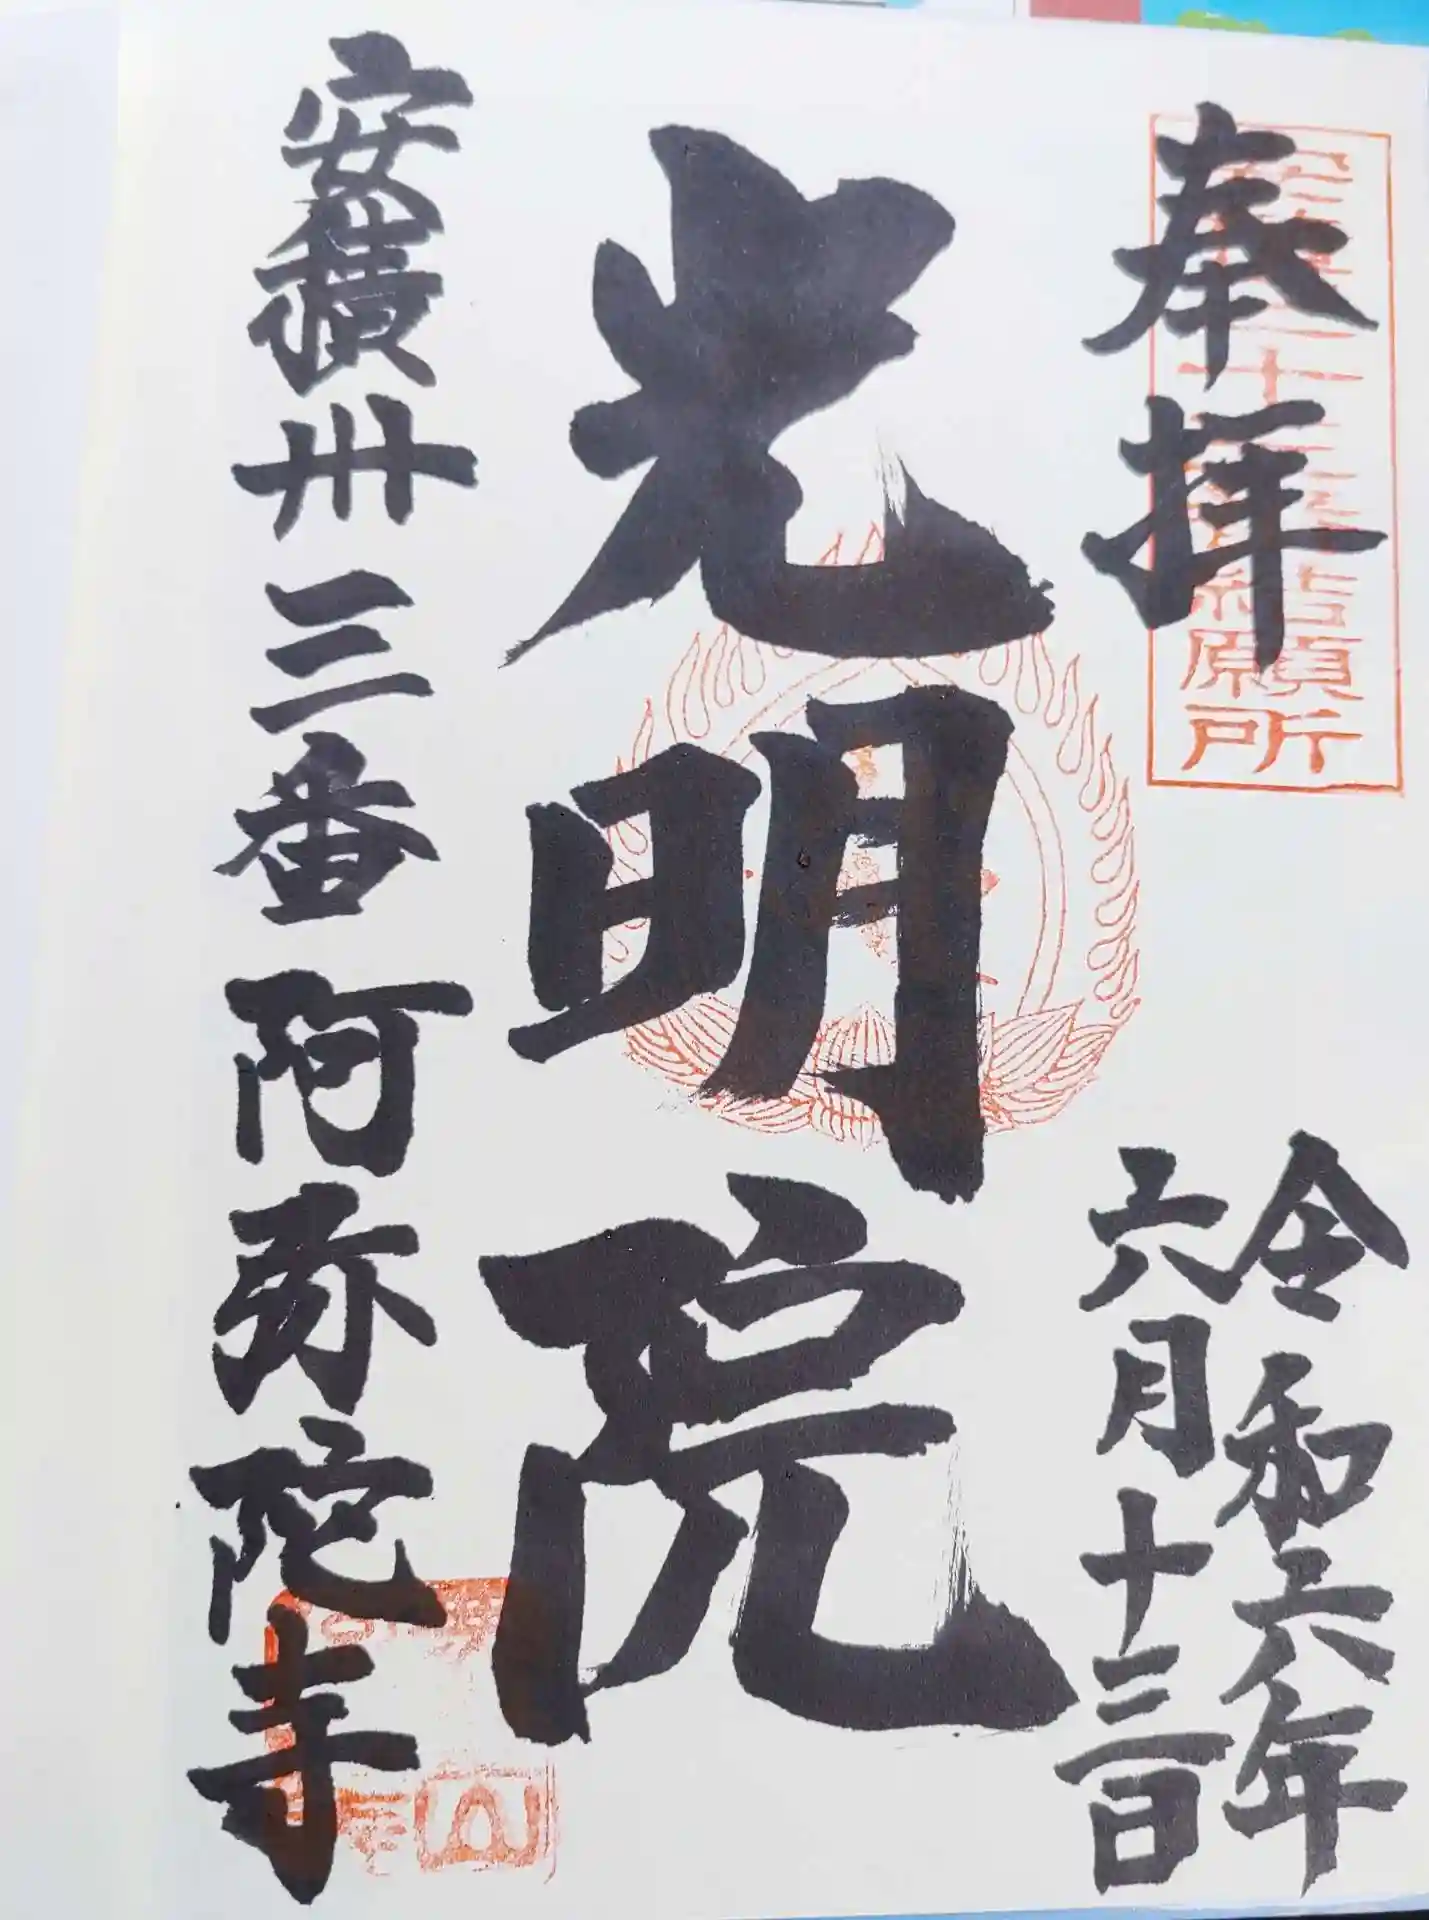 奉拝
結願所
令和六年
六月十三日
光明院
安積卅三番 阿弥陀寺